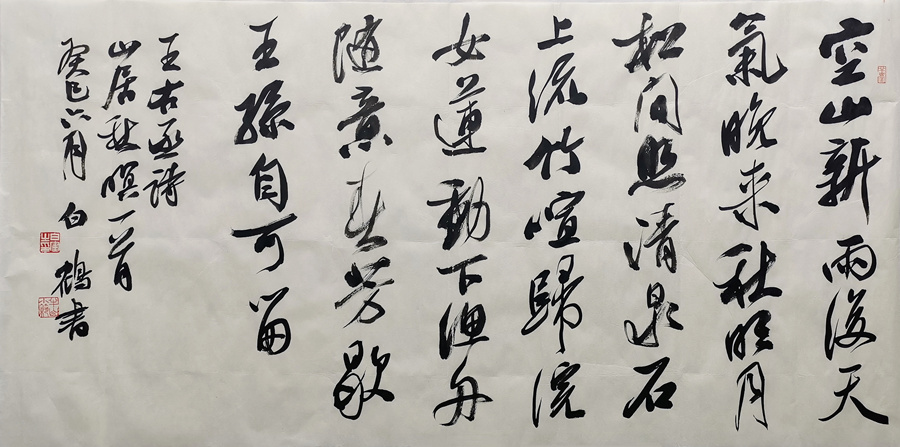 空山新雨後天
氣晚来秋明月
松间照清泉石
上流竹喧歸浣
女蓮動下渔舟
随意春芳歇
王孫自可留
王右丞詩
山居秋暝一首
癸巳六月 白鶴書